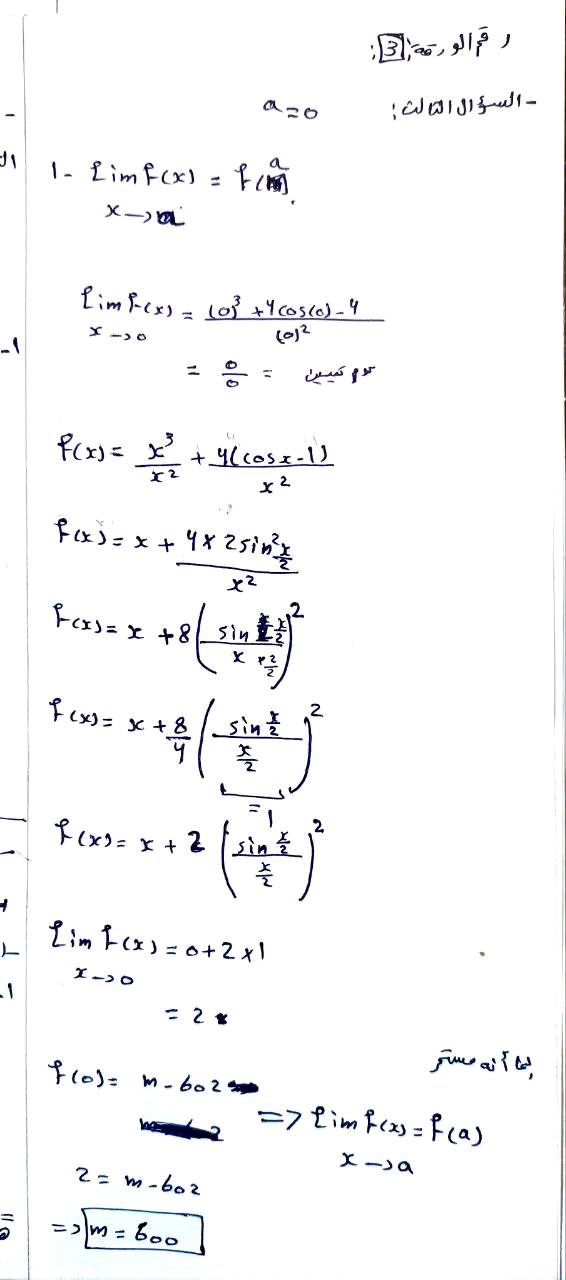 رقم الورقة: 3:
- السؤال الثالث: a=0
1- lim f(x) = f(a)
x→a
lim f(x) = (0)³ + 4cos(0) - 4 / (0)²
x→0
= 0/0 = عدم تعيين
f(x) = x³/x² + 4(cosx-1)/x²
f(x) = x + 4×2sin² x/2 / x²
f(x) = x + 8( sin x/2 / x × 2/2 )²
f(x) = x + 8/4 ( sin x/2 / x/2 )²
=1
f(x) = x + 2 ( sin x/2 / x/2 )²
lim f(x) = 0+2×1
x→0
= 2
بما أنه مستمر
f(0) = m-602
=> lim f(x) = f(a)
x→a
2 = m-602
=> m = 600